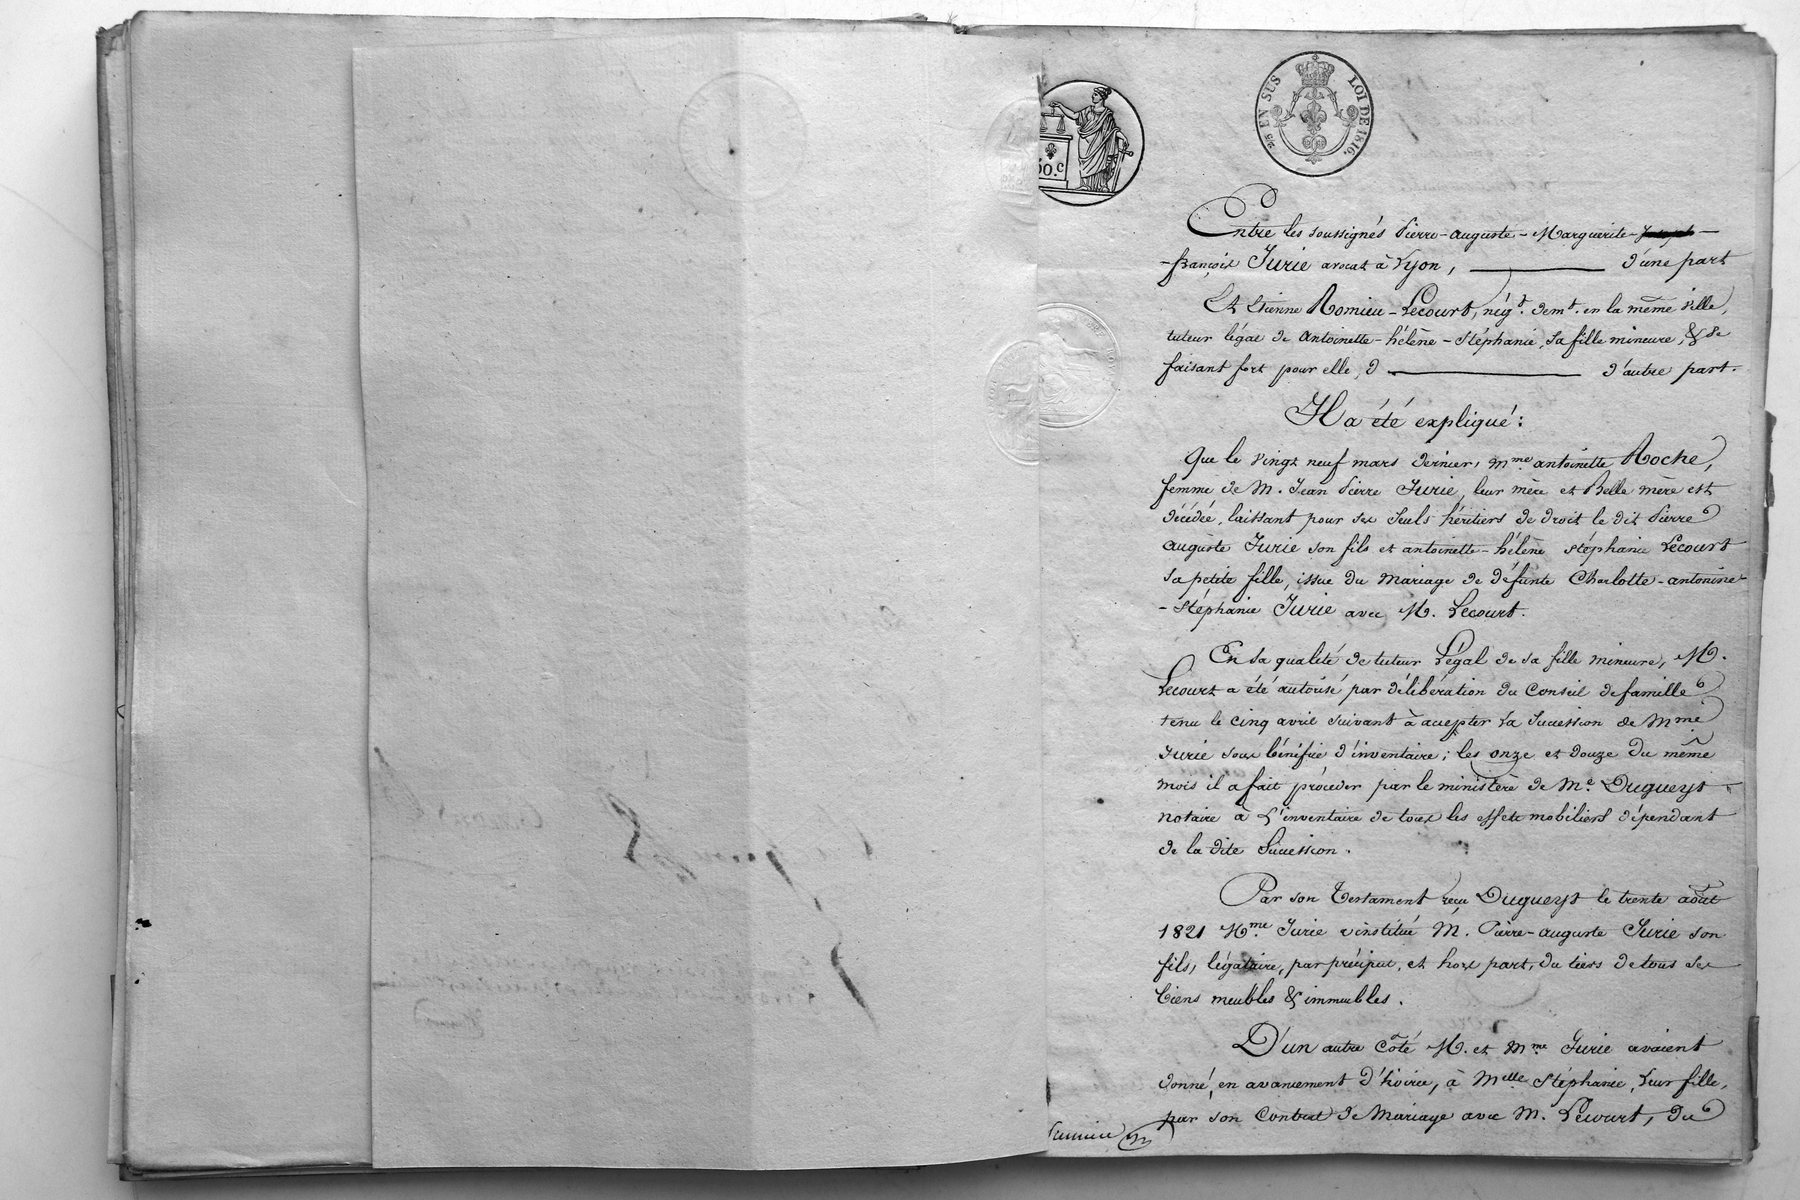 2/5 EN SUS LOI DE 1816.
50.c
Entre les soussignés Pierre-auguste-Marguerite-
-françois Jurie avocat à Lyon, d'une part
Et Etienne Romieu-Lecourt, nég.t dem.t en la même ville,
tuteur légal de antoinette-hélène-Stéphanie, sa fille mineure, & se
faisant fort pour elle, d'autre part.
Il a été expliqué:
Que le vingt neuf mars dernier, Mme antoinette Roche,
femme de M. Jean Pierre Jurie, leur mère et Belle mère est
décédée, laissant pour ses seuls héritiers de droit le dit Pierre
auguste Jurie son fils et antoinette-hélène Stéphanie Lecourt
sa petite fille, issue du mariage de défunte Charlotte-antonine
-Stéphanie Jurie avec M. Lecourt.
En sa qualité de tuteur Légal de sa fille mineure, M.
Lecourt a été autorisé par délibération du Conseil de famille
tenu le cinq avril suivant à accepter la succession de Mme
Jurie sous bénéfice d'inventaire; les onze et douze du même
mois il a fait procéder par le ministère de Me Dugueyt
notaire à L'inventaire de tous les effets mobiliers dépendant
de la dite Succession.
Par son Testament reçu Dugueyt le trente août
1821 Mme Jurie institué M. Pierre-auguste Jurie son
fils, légataire, par préciput, et hors part, du tiers de tous ses
biens meubles & immeubles.
D'un autre côté M. et Mme Jurie avaient
donné, en avancement d'hoirie, à Melle Stéphanie, leur fille,
par son Contrat de Mariage avec M. Lecourt, du